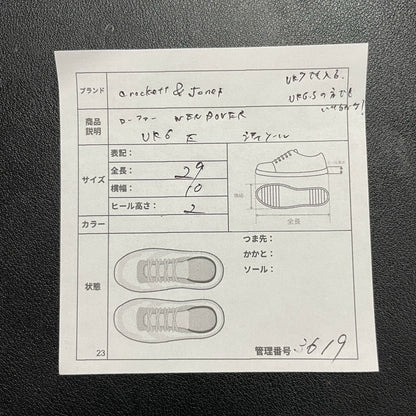 ブランド Crockett & Jones
UK7でも入る.
UK6.5の方でも
商品説明 ローファー WENDOVER
UK6 E
サイズ
表記：
全長： 29
横幅： 10
ヒール高さ： 2
全長
カラー
状態
つま先：
かかと：
ソール：
23
管理番号 3619